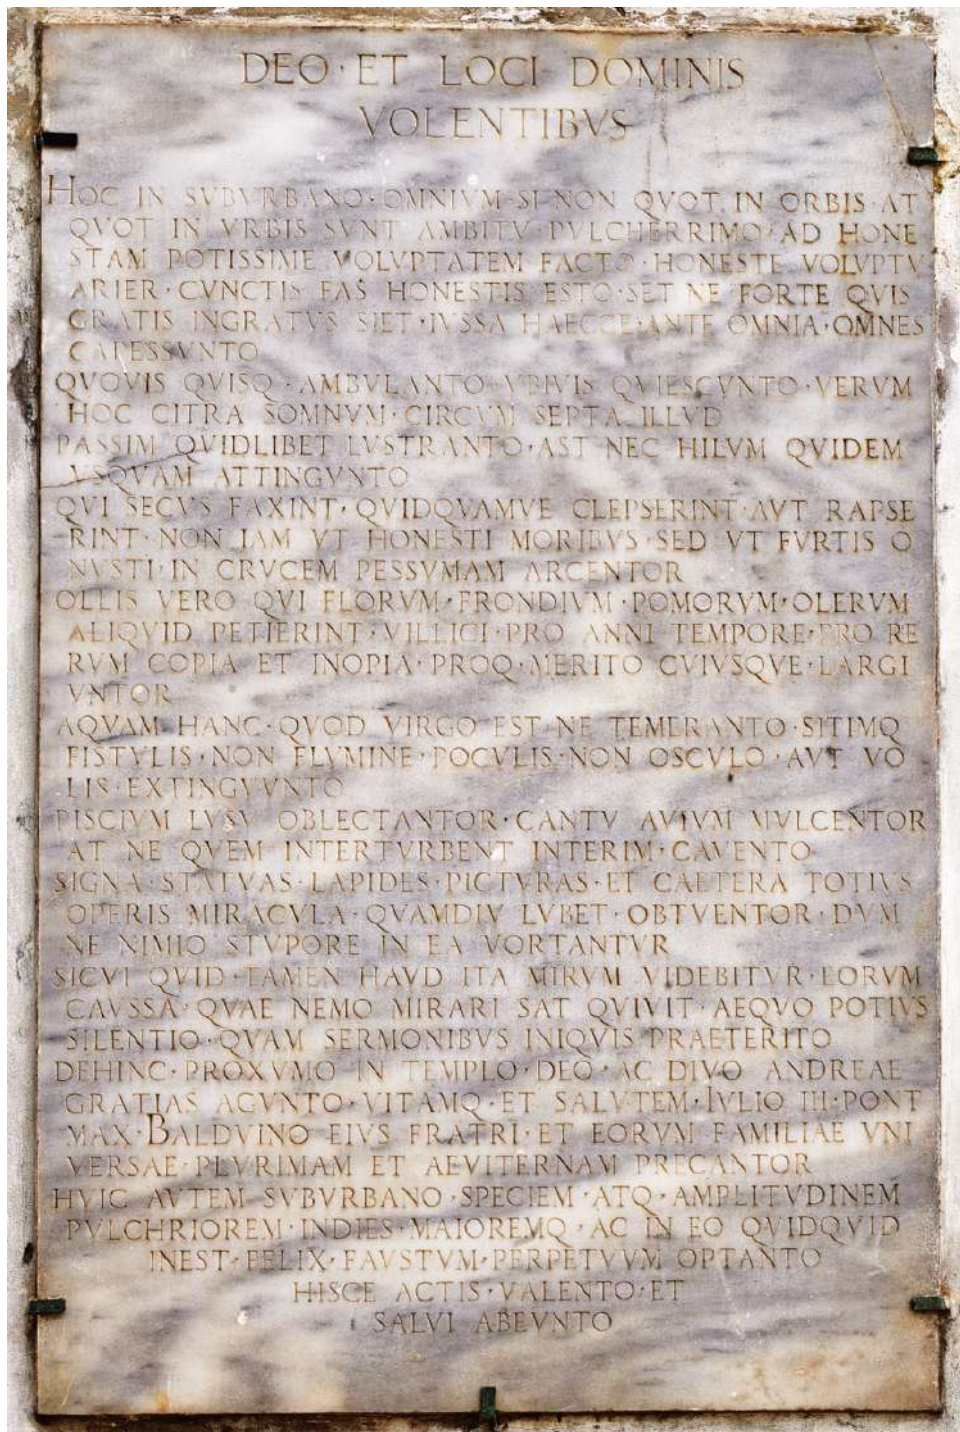 DEO · ET LOCI DOMINIS
VOLENTIBVS
HOC IN SVBVRBANO · OMNIVM · SI NON QVOT IN ORBIS AT
QVOT IN VRBIS SVNT AMBITV · PVLCHERRIMO · AD HONE
STAM POTISSIME VOLVPTATEM FACTO · HONESTE VOLVPTV
ARIER · CVNCTIS FAS HONESTIS ESTO · SET NE FORTE QVIS
GRATIS INGRATVS SIET · IVSSA HAECCE · ANTE OMNIA · OMNES
CAPESSVNTO
QVOVIS QVISQ · AMBVLANTO · VBIVIS QVIESCVNTO · VERVM
HOC CITRA SOMNVM · CIRCVM SEPTA ILLVD
PASSIM QVIDLIBET LVSTRANTO · AST NEC HILVM QVIDEM
VSQVAM ATTINGVNTO
QVI SECVS FAXINT · QVIDQVAMVE CLEPSERINT · AVT RAPSE
RINT · NON IAM VT HONESTI MORIBVS · SED VT FVRTIS O
NVSTI · IN CRVCEM PESSVMAM ARCENTOR
OLLIS VERO QVI FLORVM · FRONDIVM · POMORVM · OLERVM
ALIQVID PETIERINT · VILLICI · PRO ANNI TEMPORE · PRO RE
RVM COPIA ET INOPIA · PROQ · MERITO CVIVSQVE · LARGI
VNTOR
AQVAM HANC · QVOD VIRGO EST · NE TEMERANTO · SITIMQ
FISTVLIS · NON FLVMINE · POCVLIS · NON OSCVLO · AVT VO
LIS · EXTINGVVNTO
PISCIVM LVSV OBLECTANTOR · CANTV AVIVM MVLCENTOR
AT NE QVEM INTERTVRBENT INTERIM · CAVENTO
SIGNA · STATVAS · LAPIDES · PICTVRAS · ET CAETERA TOTIVS
OPERIS MIRACVLA · QVAMDIV LVBET · OBTVENTOR · DVM
NE NIMIO STVPORE IN EA VORTANTVR
SICVI QVID · TAMEN HAVD ITA MIRVM VIDEBITVR · EORVM
CAVSSA · QVAE NEMO MIRARI SAT QVIVIT · AEQVO POTIVS
SILENTIO · QVAM SERMONIBVS INIQVIS PRAETERITO
DEHINC · PROXVMO IN TEMPLO · DEO · AC DIVO ANDREAE
GRATIAS AGVNTO · VITAMQ · ET SALVTEM · IVLIO III · PONT
MAX · BALDVINO EIVS FRATRI · ET EORVM FAMILIAE VNI
VERSAE · PLVRIMAM ET AEVITERNAM PRECANTOR
HVIC AVTEM SVBVRBANO · SPECIEM · ATQ · AMPLITVDINEM
PVLCHRIOREM · INDIES · MAIOREMQ · AC IN EO QVIDQVID
INEST · FELIX · FAVSTVM · PERPETVVM OPTANTO
HISCE ACTIS · VALENTO · ET
SALVI ABEVNTO